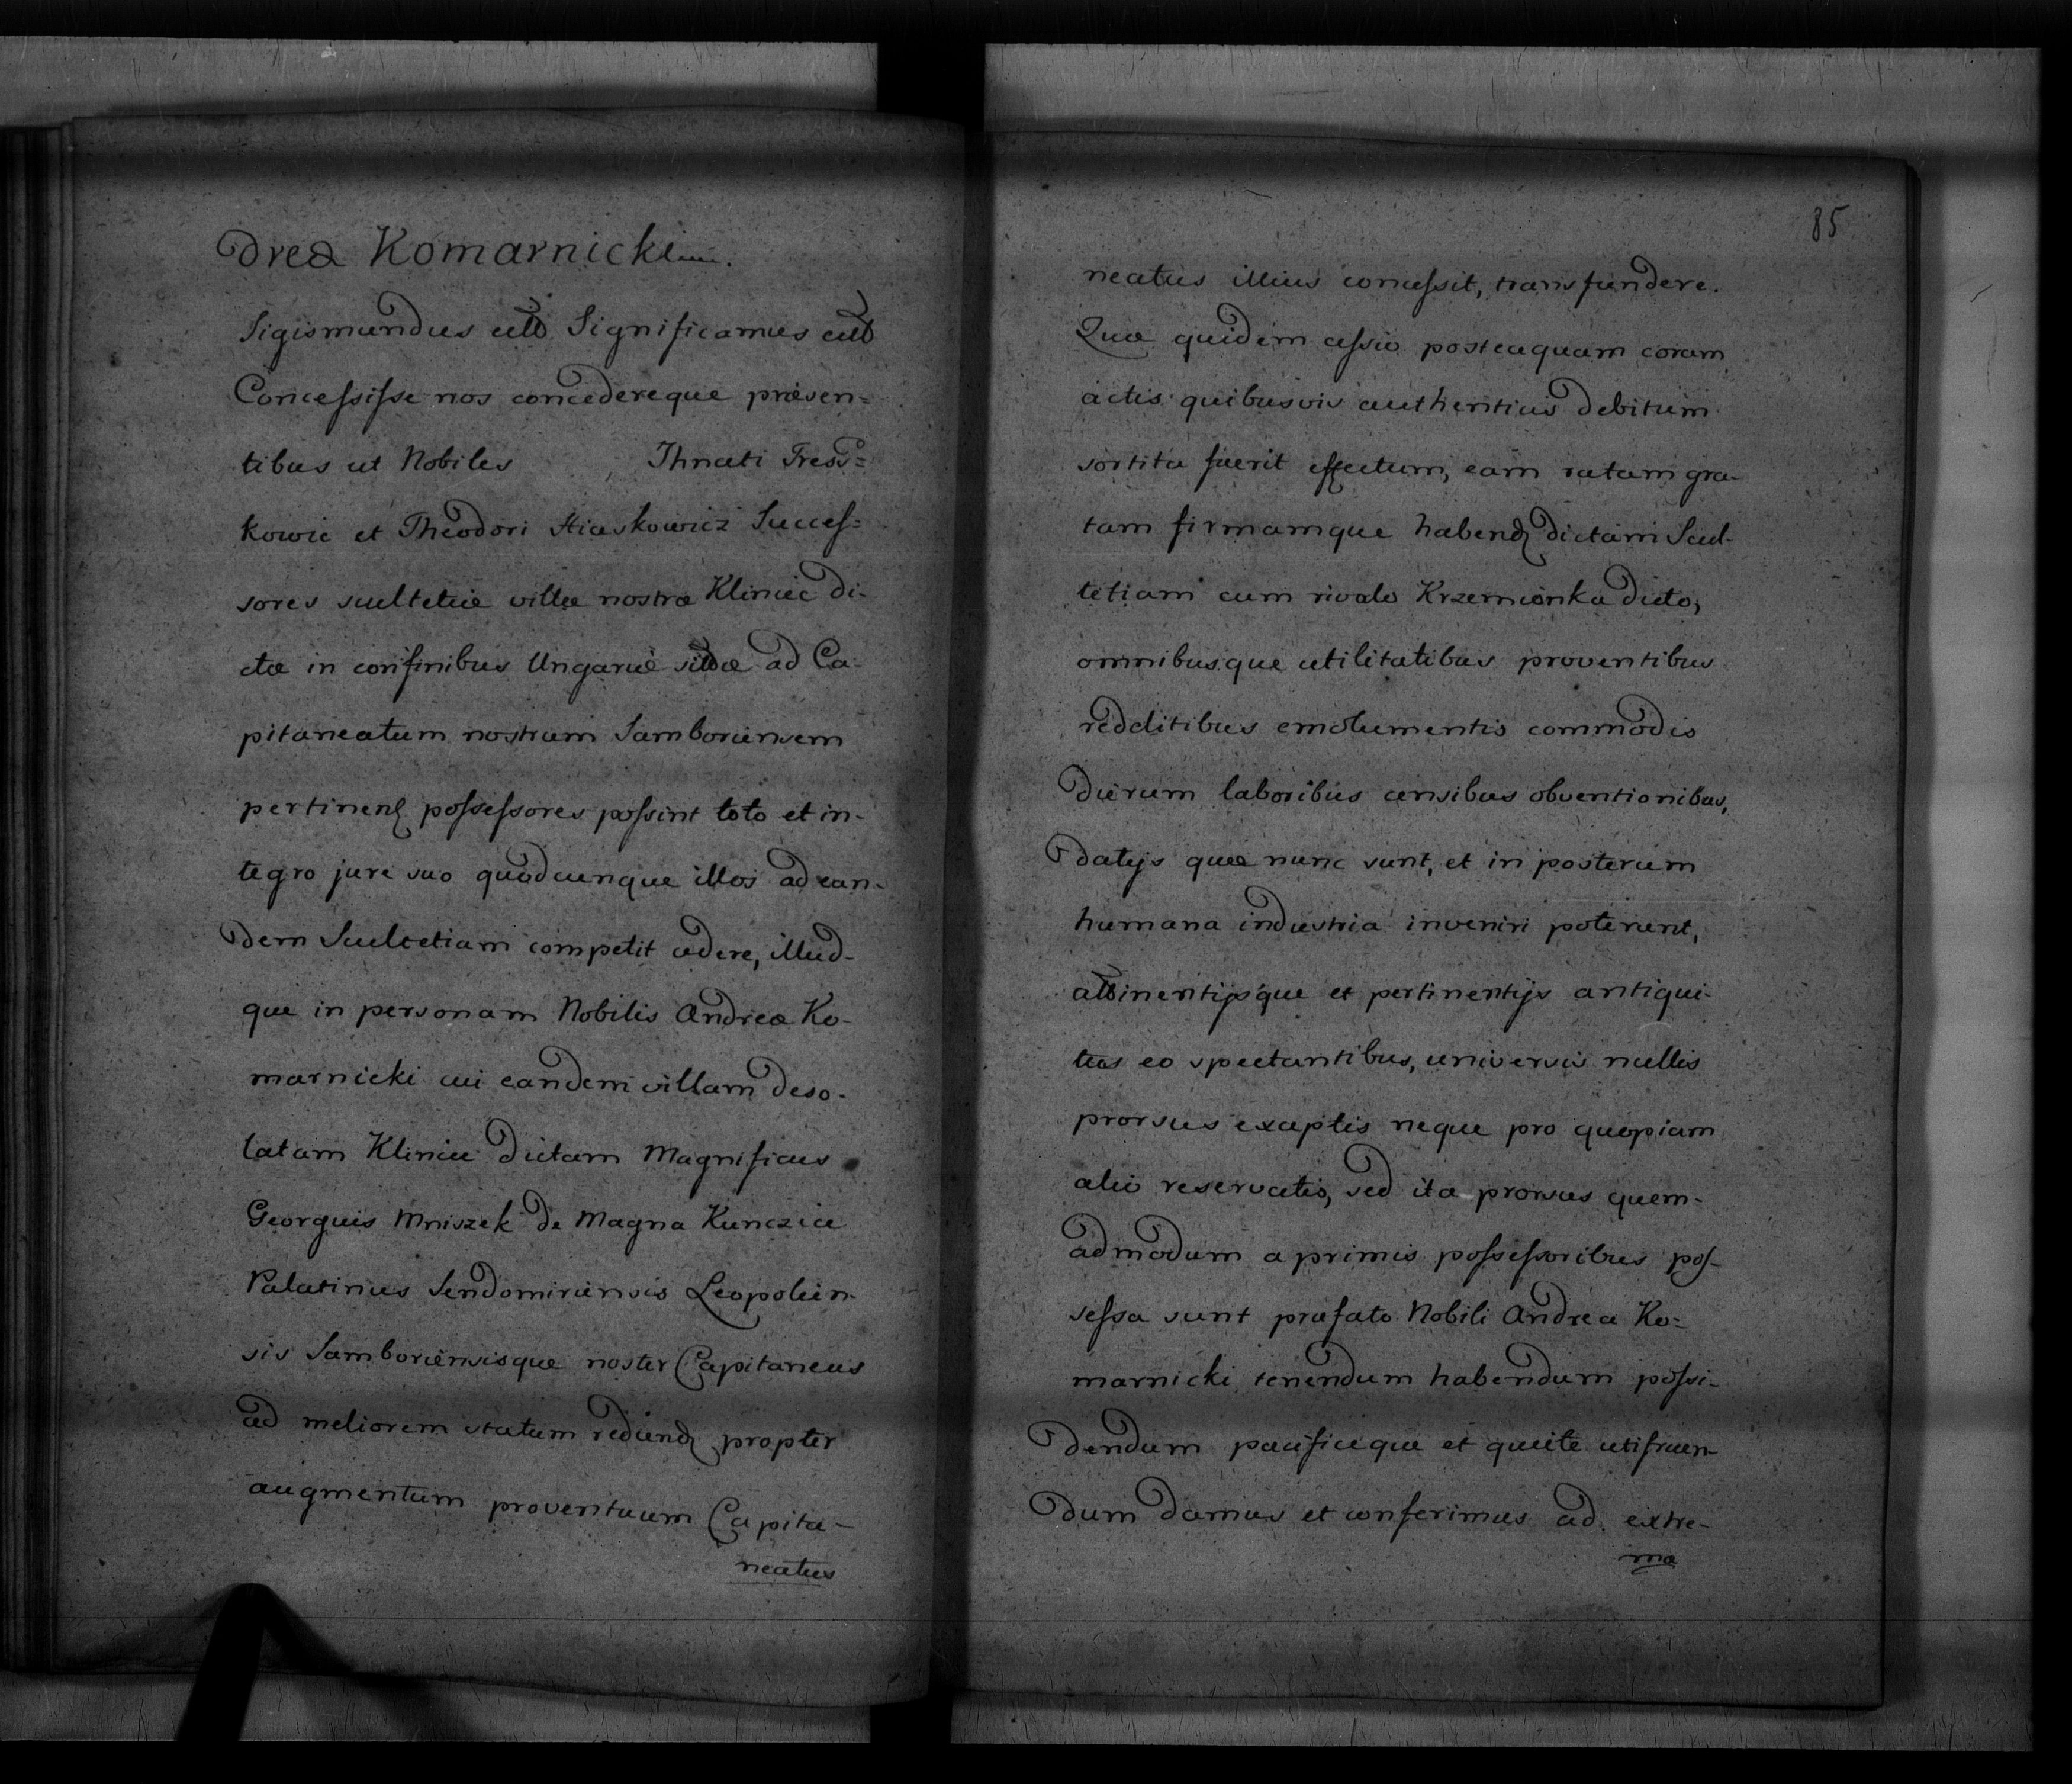 dreæ Komarnicki.
Sigismundus etc. Significamus etc.
Concessisse nos concedereque præsen=
tibus ut Nobiles Ihnati Tress=
kowic et Theodori Succes=
sores scultetiæ villæ nostræ Kliniec di-
ctæ in confinibus Ungariæ sittæ ad Ca-
pitaneatum nostrum Samboriensem
pertinen possessores possint toto et in-
tegro jure suo quodcunque illos ad ean-
dem Scultetiam competit cedere, illud-
que in personam Nobilis Andreæ Ko-
marnicki cui eandem villam deso-
latam Kliniec dictam Magnificus
Georgius Mniszek de Magna Kunczice
Palatinus Sendomiriensis Leopolien-
sis Samboriensisque noster Capitaneus
ad meliorem statum redigend propter
augmentum proventuum Capita-
neatus
85
neatus illius concessit, transfundere.
Quæ quidem cessio posteaquam coram
actis quibusvis authenticis debitum
sortita fuerit effectum, eam ratam gra-
tam firmamque habend dictam Scul-
tetiam cum rivulo Krzemionka dicto,
omnibusque utilitatibus proventibus
redditibus emolumentis commodis
dierum laboribus censibus obventionibus,
datijs quæ nunc sunt, et in posterum
humana industria inveniri poterunt,
attinentijsque et pertinentijs antiqui-
tus eo spectantibus, universis nullis
prorsus exceptis neque pro quopiam
alio reservatis, sed ita prorsus quem-
admodum a primis possessoribus pos-
sessa sunt præfato Nobili Andreæ Ko=
marnicki tenendum habendum possi-
dendum pacificeque et quiete utifruen-
dum damus et conferimus ad extre-
ma